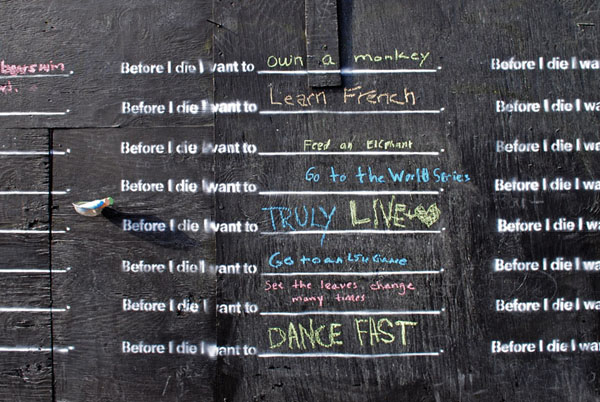 bears win. Before I die I want to own a monkey. Before I die I wa
Before I die I want to Learn French. Before I die I wa
Before I die I want to Feed an Elephant. Before I die I wa
Before I die I want to Go to the World Series. Before I die I wa
Before I die I want to TRULY LIVE. Before I die I wa
Before I die I want to Go to an LSU Game. Before I die I wa
Before I die I want to See the leaves change
many times. Before I die I wa
Before I die I want to DANCE FAST. Before I die I wa